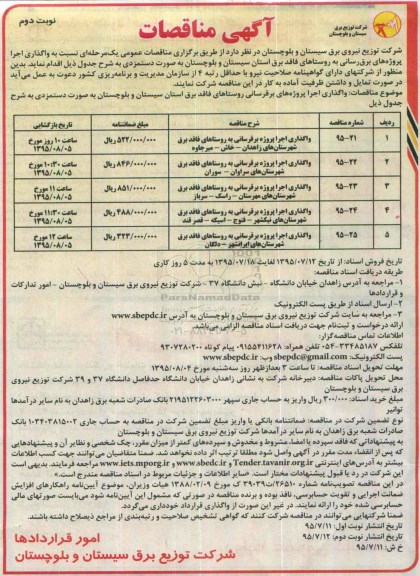 نوبت دوم
آگهی مناقصات
شرکت توزیع برق
سیستان و بلوچستان
شرکت توزیع نیروی برق سیستان و بلوچستان در نظر دارد از طریق برگزاری مناقصات عمومی یک‌مرحله‌ای نسبت به واگذاری اجرا
پروژه‌های برق‌رسانی به روستاهای فاقد برق استان سیستان و بلوچستان به صورت دستمزدی به شرح جدول ذیل اقدام نماید. بدین
منظور از شرکتهای دارای گواهینامه صلاحیت نیرو با حداقل رتبه ۴ از سازمان مدیریت و برنامه‌ریزی کشور دعوت به عمل می‌آید
در صورت تمایل و داشتن ظرفیت آماده به کار در این مناقصه شرکت نمایند.
موضوع مناقصات: واگذاری اجرا پروژه‌های برقرسانی روستاهای فاقد برق استان سیستان و بلوچستان به صورت دستمزدی به شرح
جدول ذیل
ردیف شماره مناقصه شرح مناقصه مبلغ ضمانتنامه تاریخ بازگشایی
۱ ۹۵-۲۱ واگذاری اجرا پروژه برقرسانی به روستاهای فاقد برق شهرستان‌های زاهدان – خاش – میرجاوه ۵۲۲/۰۰۰/۰۰۰ ریال ساعت ۱۰ روز مورخ ۱۳۹۵/۰۸/۰۵
۲ ۹۵-۲۲ واگذاری اجرا پروژه برقرسانی به روستاهای فاقد برق شهرستان‌های سراوان – سوران ۸۴۶/۰۰۰/۰۰۰ ریال ساعت ۱۰:۳۰ مورخ ۱۳۹۵/۰۸/۰۵
۳ ۹۵-۲۳ واگذاری اجرا پروژه برقرسانی به روستاهای فاقد برق شهرستان‌های مهرستان – راسک – سرباز ۸۵۱/۰۰۰/۰۰۰ ریال ساعت ۱۱ مورخ ۱۳۹۵/۰۸/۰۵
۴ ۹۵-۲۴ واگذاری اجرا پروژه برقرسانی به روستاهای فاقد برق شهرستان‌های نیکشهر – فنوج – اسپکه – قصر قند ۴۸۸/۰۰۰/۰۰۰ ریال ساعت ۱۱:۳۰ مورخ ۱۳۹۵/۰۸/۰۵
۵ ۹۵-۲۵ واگذاری اجرا پروژه برقرسانی به روستاهای فاقد برق شهرستان‌های ایرانشهر – دلگان ۳۲۳/۰۰۰/۰۰۰ ریال ساعت ۱۲ مورخ ۱۳۹۵/۰۸/۰۵
تاریخ فروش اسناد: از تاریخ ۱۳۹۵/۰۷/۱۲ لغایت ۱۳۹۵/۰۷/۱۸ به مدت ۵ روز کاری
طریقه دریافت اسناد مناقصه:
۱- مراجعه به آدرس زاهدان خیابان دانشگاه – نبش دانشگاه ۳۷ – شرکت توزیع نیروی برق سیستان و بلوچستان – امور تدارکات
و قراردادها
۲- ارسال اسناد از طریق پست الکترونیک
۳- مراجعه به سایت شرکت توزیع نیروی برق سیستان و بلوچستان به آدرس www.sbepdc.ir
ارائه درخواست و ثبت‌نام جهت دریافت اسناد مناقصه الزامی می‌باشد.
اطلاعات تماس مناقصه‌گزار:
تلفکس ۳۳۴۸۵۱۸۷-۰۵۴ تلفن همراه: ۰۹۱۵۵۴۱۱۶۲۸ پیام کوتاه ۹۳۰۷۲۸۰۲۰۰
پست الکترونیک: sbepdc@gmail.com وب: www.sbepdc.ir
مهلت تحویل اسناد مناقصه: تا ساعت ۳ بعدازظهر روز سه‌شنبه مورخ ۱۳۹۵/۰۸/۰۴
محل تحویل پاکات مناقصه: دبیرخانه شرکت به نشانی زاهدان خیابان دانشگاه حدفاصل دانشگاه ۳۷ و ۳۹ شرکت توزیع نیروی
برق سیستان و بلوچستان
مبلغ خرید اسناد: ۳۰۰/۰۰۰ ریال واریز به حساب جاری سپهر بانک صادرات شعبه برق زاهدان به نام سایر درآمدها
توانیر
نوع تضمین شرکت در مناقصه: ضمانتنامه بانکی یا واریز مبلغ تضمین شرکت در مناقصه به حساب جاری ۰۱۰۳۴۰۳۸۱۵۰۰۲ بانک
صادرات شعبه برق زاهدان به نام سایر درآمدها شرکت توزیع نیروی برق سیستان و بلوچستان
به پیشنهاداتی که فاقد سپرده یا امضا، مشروط و مخدوش و سپرده‌های کمتر از میزان مقرر، چک شخصی و نظایر آن و پیشنهادهایی
که پس از انقضاء مدت مقرر در آگهی واصل شود مطلقا ترتیب اثر داده نخواهد شد. ضمنا متقاضیان می‌توانند جهت کسب اطلاعات
بیشتر به آدرس‌های اینترنتی www.sbedc.ir و Tender.tavanir.org.ir و www.iets.mporg.ir مراجعه فرمایند. بدیهی است
این شرکت در رد یا قبول پیشنهادات مختار است. سایر اطلاعات و جزئیات مربوط در اسناد مناقصه مندرج است.»
در این مناقصه تصویب‌نامه شماره ۲۶۵۱۰/ت۳۹۰۳۹ ک مورخ ۱۳۸۸/۰۲/۰۹ هیات وزیران، موضوع آیین‌نامه راهکارهای افزایش
ضمانت اجرایی و تقویت حسابرسی، نافذ بوده و برنده مناقصه در صورتی که مشمول این آیین‌نامه شود می‌بایست صورتهای مالی
حسابرسی شده خود را ارائه نمایند. در غیر این صورت از واگذاری قرارداد خودداری می‌گردد.
ضمنا شرکتهایی می توانند در مناقصه شرکت کنند که گواهی تشخیص صلاحیت و رتبه‌بندی از مراجع ذیصلاح داشته باشند.
تاریخ انتشار نوبت اول: ۹۵/۷/۱۱
تاریخ انتشار نوبت دوم: ۹۵/۷/۱۲
خ ش: ۹۵/۷/۱۱
امور قراردادها
شرکت توزیع برق سیستان و بلوچستان